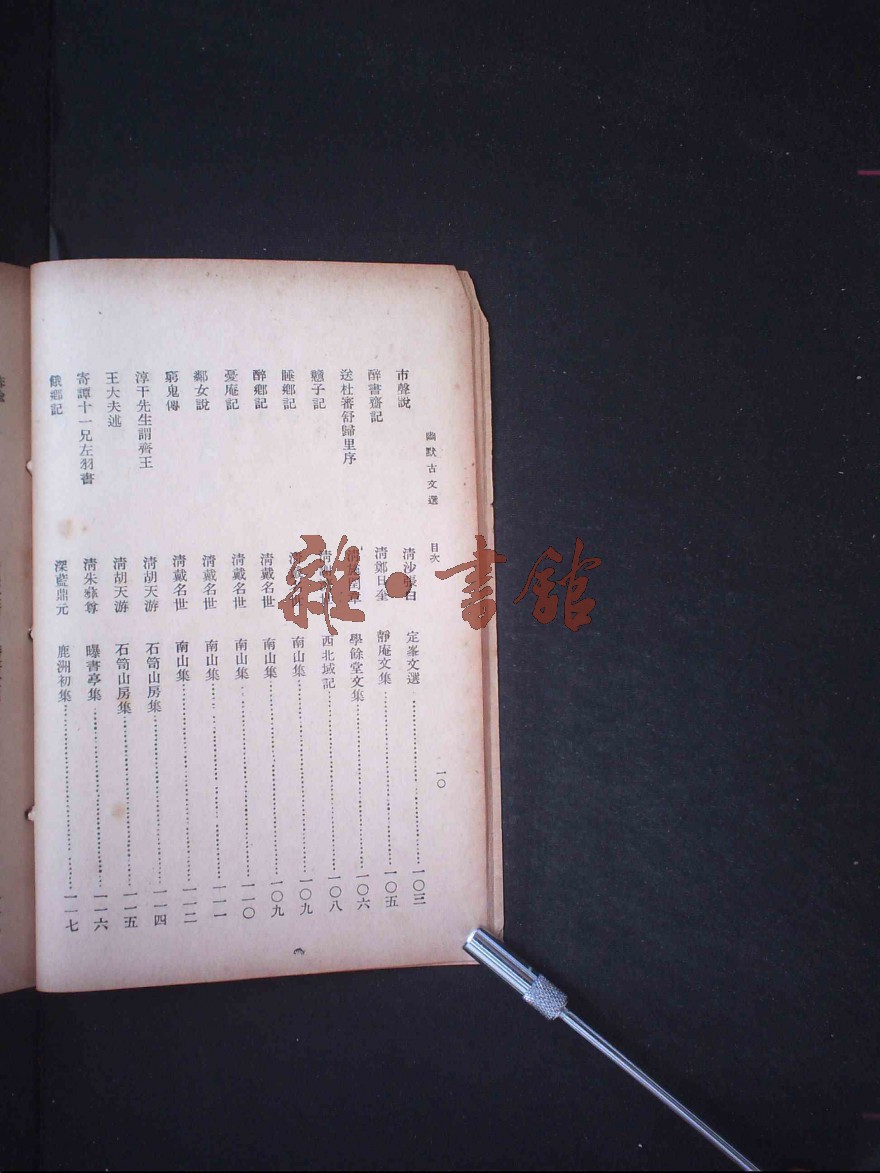 幽默古文選 目次 一〇
市聲說 清沙張白 定峯文選 一〇三
醉書齋記 清鄭日奎 靜庵文集 一〇五
送杜審舒歸里序 學餘堂文集 一〇六
戇子記 西北域記 一〇八
睡鄉記 南山集 一〇九
醉鄉記 清戴名世 南山集 一〇九
憂庵記 清戴名世 南山集 一一〇
鄰女說 清戴名世 南山集 一一一
窮鬼傳 清戴名世 南山集 一一二
淳于先生謂齊王 清胡天游 石笥山房集 一一四
王大夫述 清胡天游 石笥山房集 一一五
寄譚十一兄左羽書 清朱彝尊 曝書亭集 一一六
餓鄉記 深藍鼎元 鹿洲初集 一一七
雜·書館